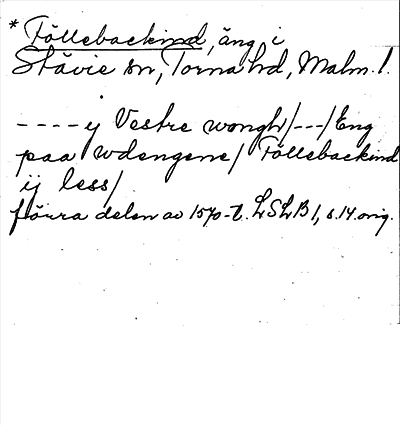 * Föllebackind, äng i
Stävie sn, Torna hd, Malm. l.
- - - - ij Vestre wongh/---/Eng
paa wdengene/ Föllebackind
ij less/
förra delen av 1570-t. LSLB 1, s. 14 orig.